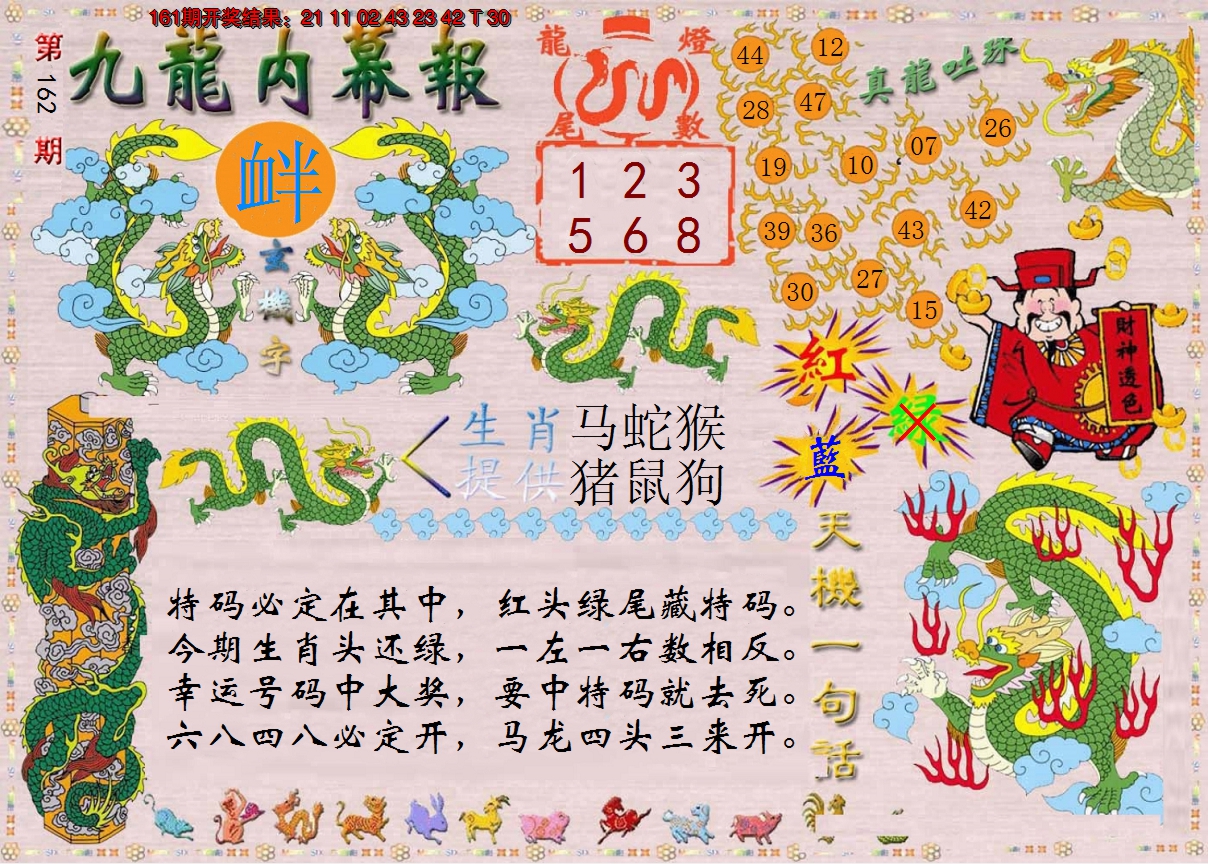 161期开奖结果：21 11 02 43 23 42 T 30
第162期
九龍内幕報
龍燈尾數
1 2 3
5 6 8
真龍吐珠
44 12
28 47
19 10 07 26
39 36 43 42
30 27 15
衅
玄機字
紅
绿
藍
財神透色
生肖提供
马蛇猴
猪鼠狗
天機一句話
特码必定在其中，红头绿尾藏特码。
今期生肖头还绿，一左一右数相反。
幸运号码中大奖，要中特码就去死。
六八四八必定开，马龙四头三来开。